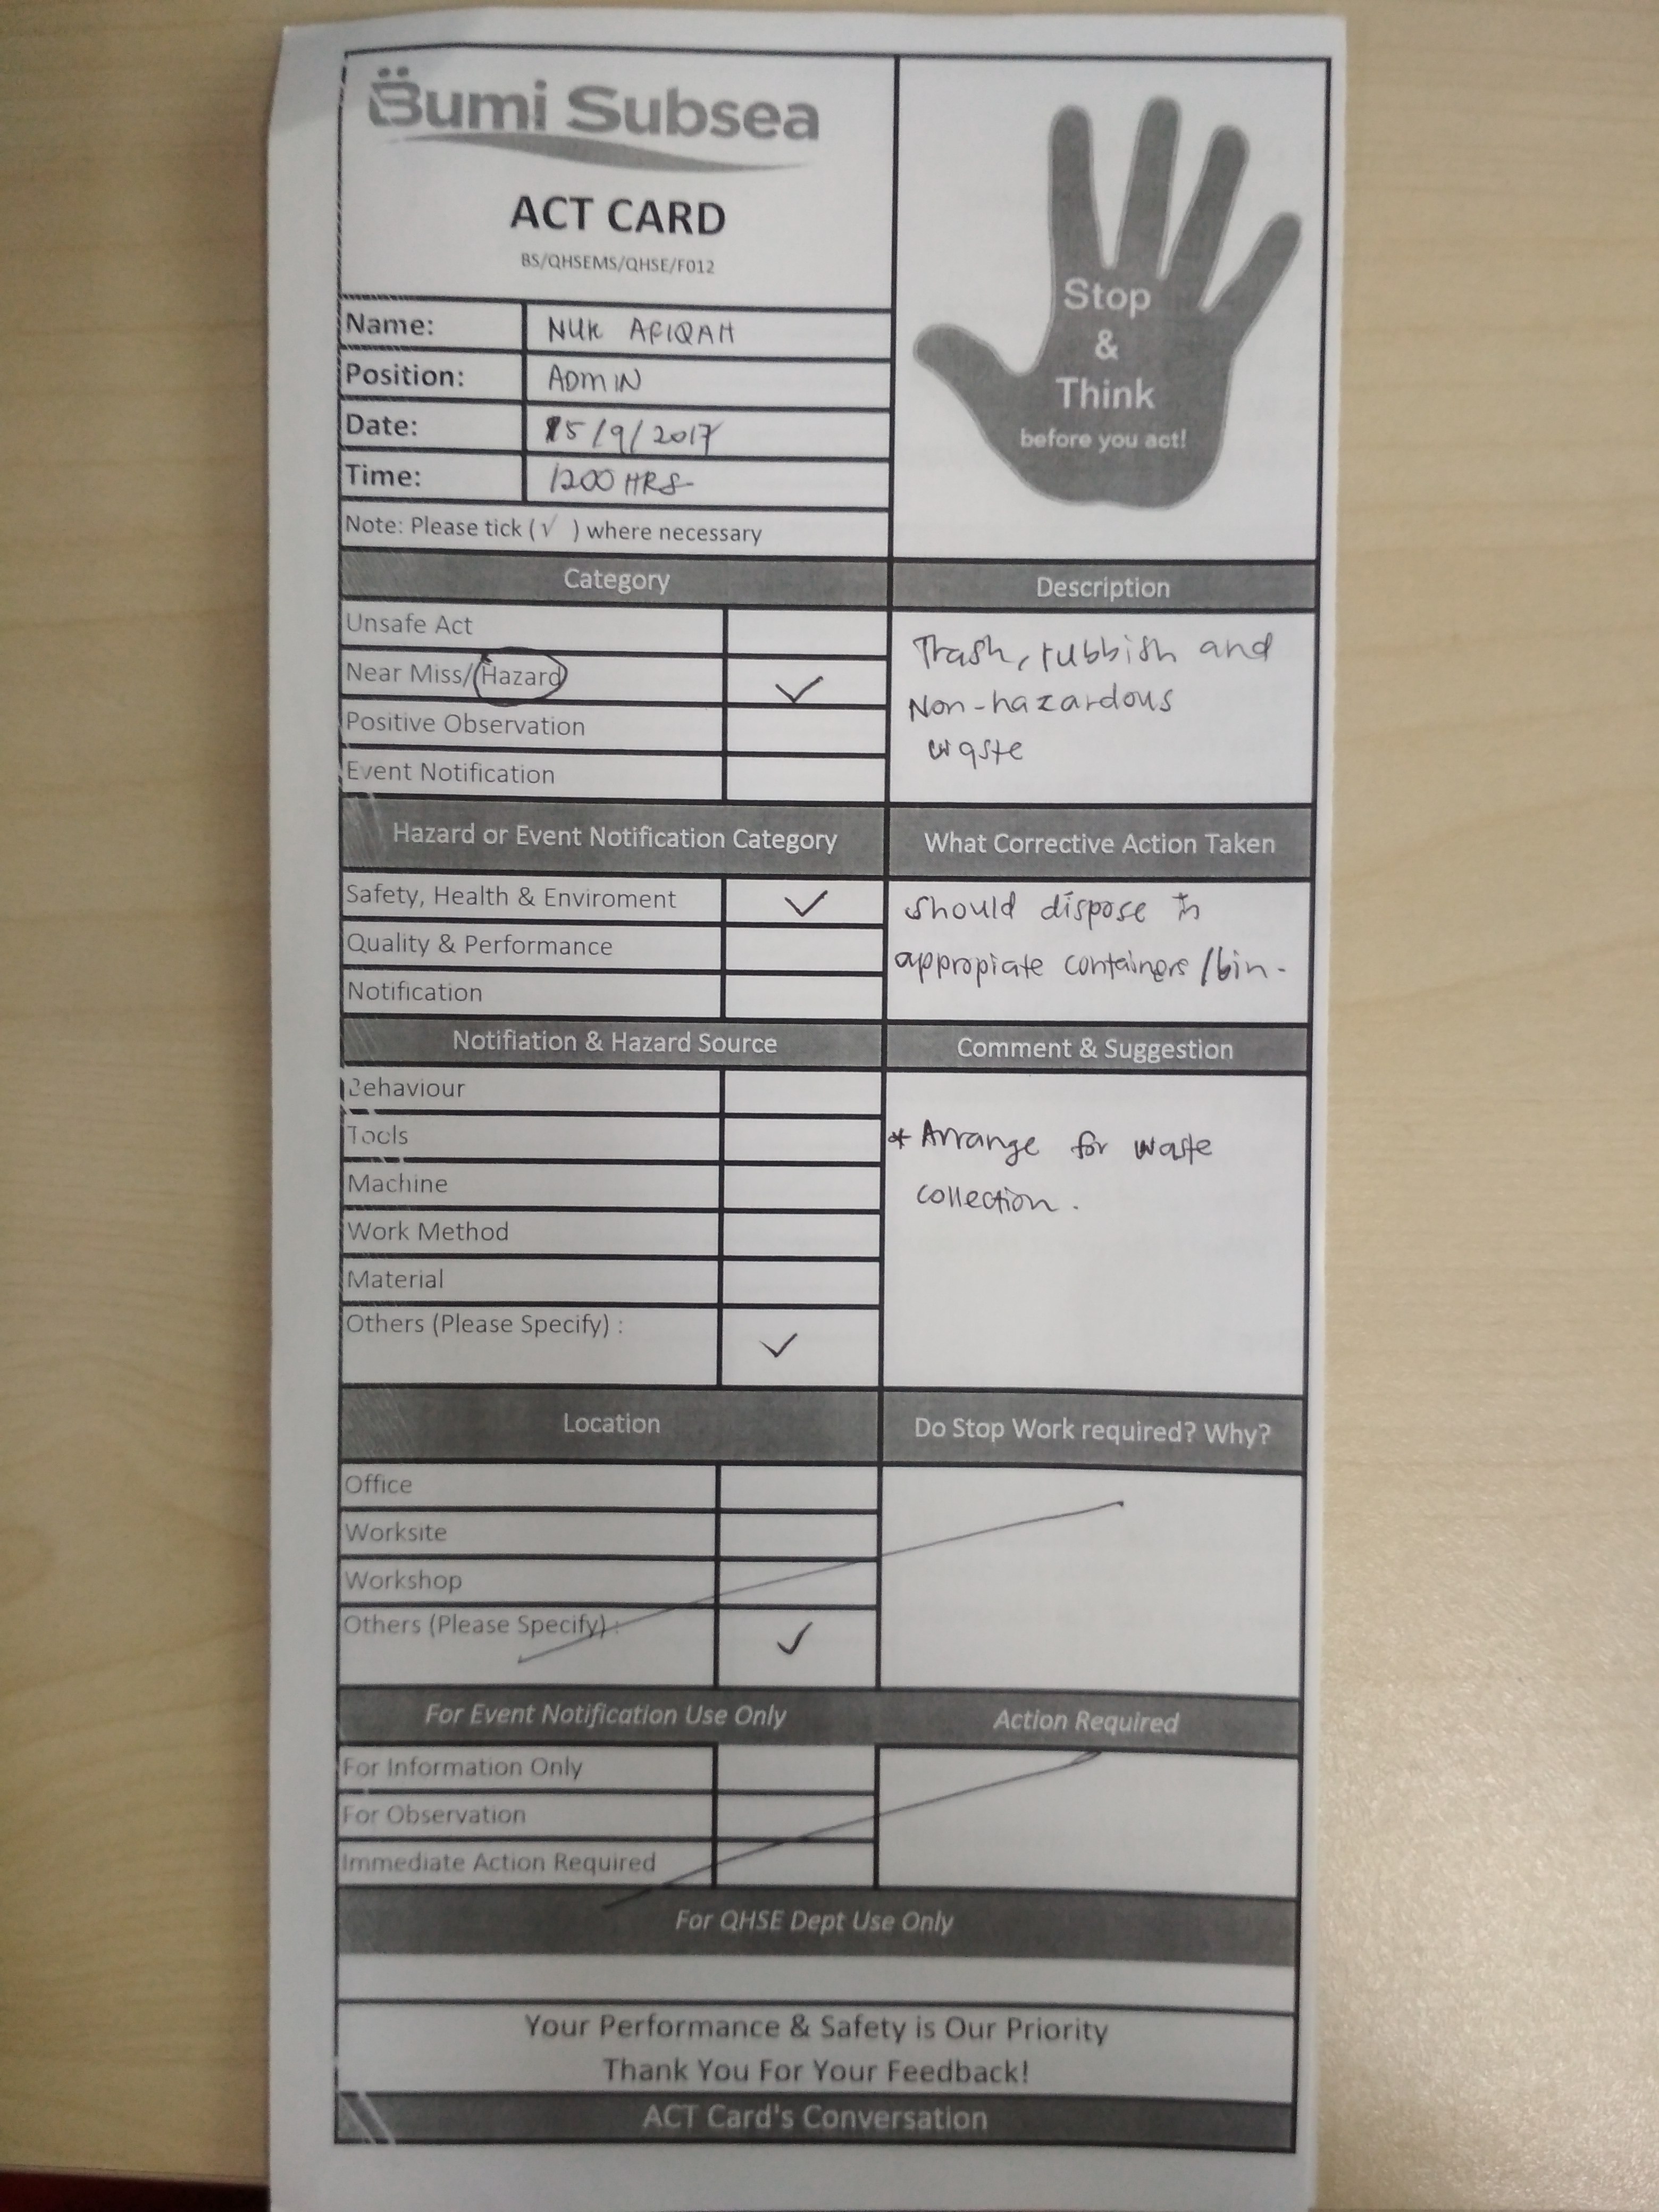 Bumi Subsea
ACT CARD
BS/QHSEMS/QHSE/F012
Stop
&
Think
before you act!
Name: NUR AFIQAH
Position: ADMIN
Date: 15/9/2017
Time: 1200 HRS
Note: Please tick (√ ) where necessary
Category
Unsafe Act
Near Miss/Hazard ✓
Positive Observation
Event Notification
Description
Trash, rubbish and
Non-hazardous
waste
Hazard or Event Notification Category
Safety, Health & Enviroment ✓
Quality & Performance
Notification
What Corrective Action Taken
should dispose in
appropiate containers/bin.
Notifiation & Hazard Source
Behaviour
Tools
Machine
Work Method
Material
Others (Please Specify) : ✓
Comment & Suggestion
* Arrange for waste
collection.
Location
Office
Worksite
Workshop
Others (Please Specify) : ✓
Do Stop Work required? Why?
For Event Notification Use Only
For Information Only
For Observation
Immediate Action Required
Action Required
For QHSE Dept Use Only
Your Performance & Safety is Our Priority
Thank You For Your Feedback!
ACT Card's Conversation